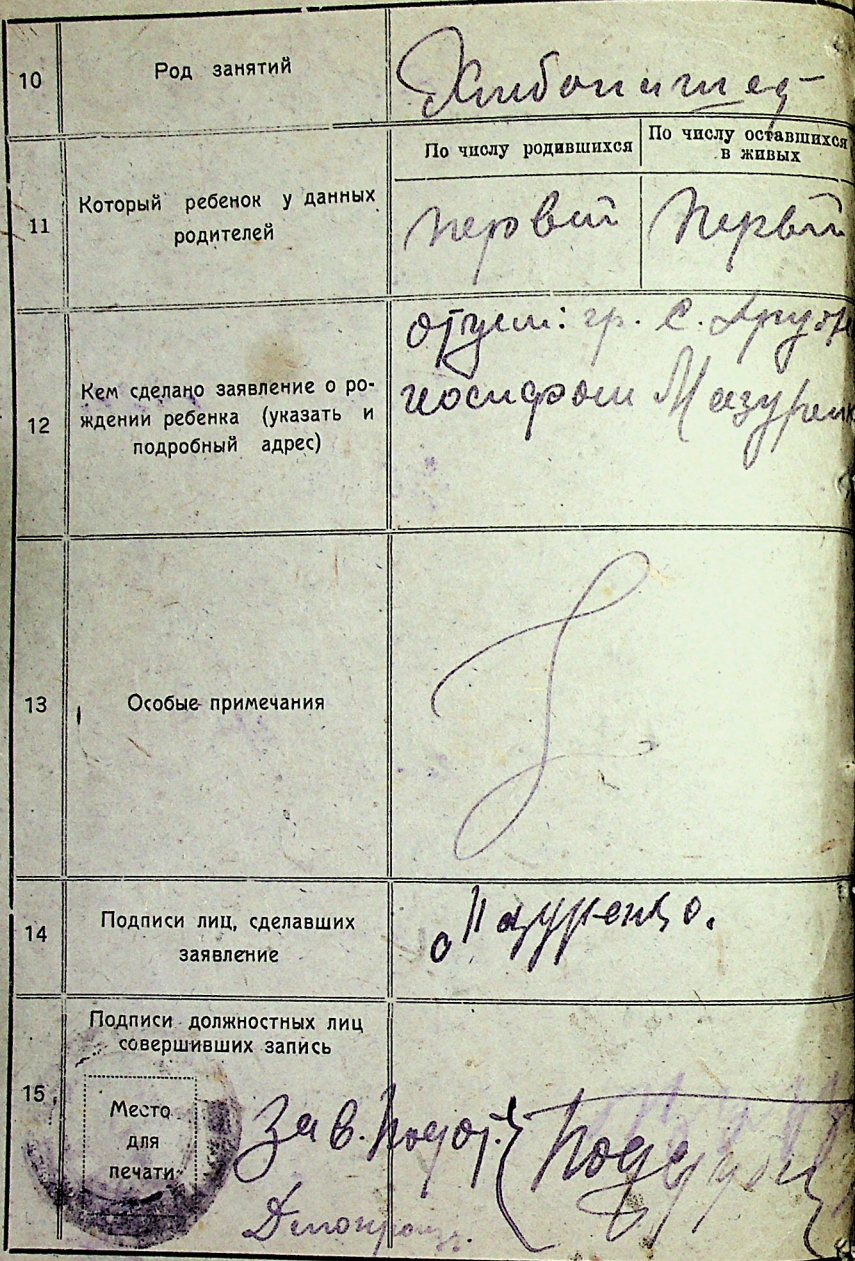 10
Род занятий
Хлибопашед
По числу родившихся
По числу оставшихся
в живых
11
Который ребенок у данных
родителей
первий
Первий
12
Кем сделано заявление о ро-
ждении ребенка (указать и
подробный адрес)
отцем: гр. с.
иосифом Мазуренк
13
Особые примечания
14
Подписи лиц, сделавших
заявление
Мазуренко.
15
Подписи должностных лиц
совершивших запись
Место
для
печати
Зав.